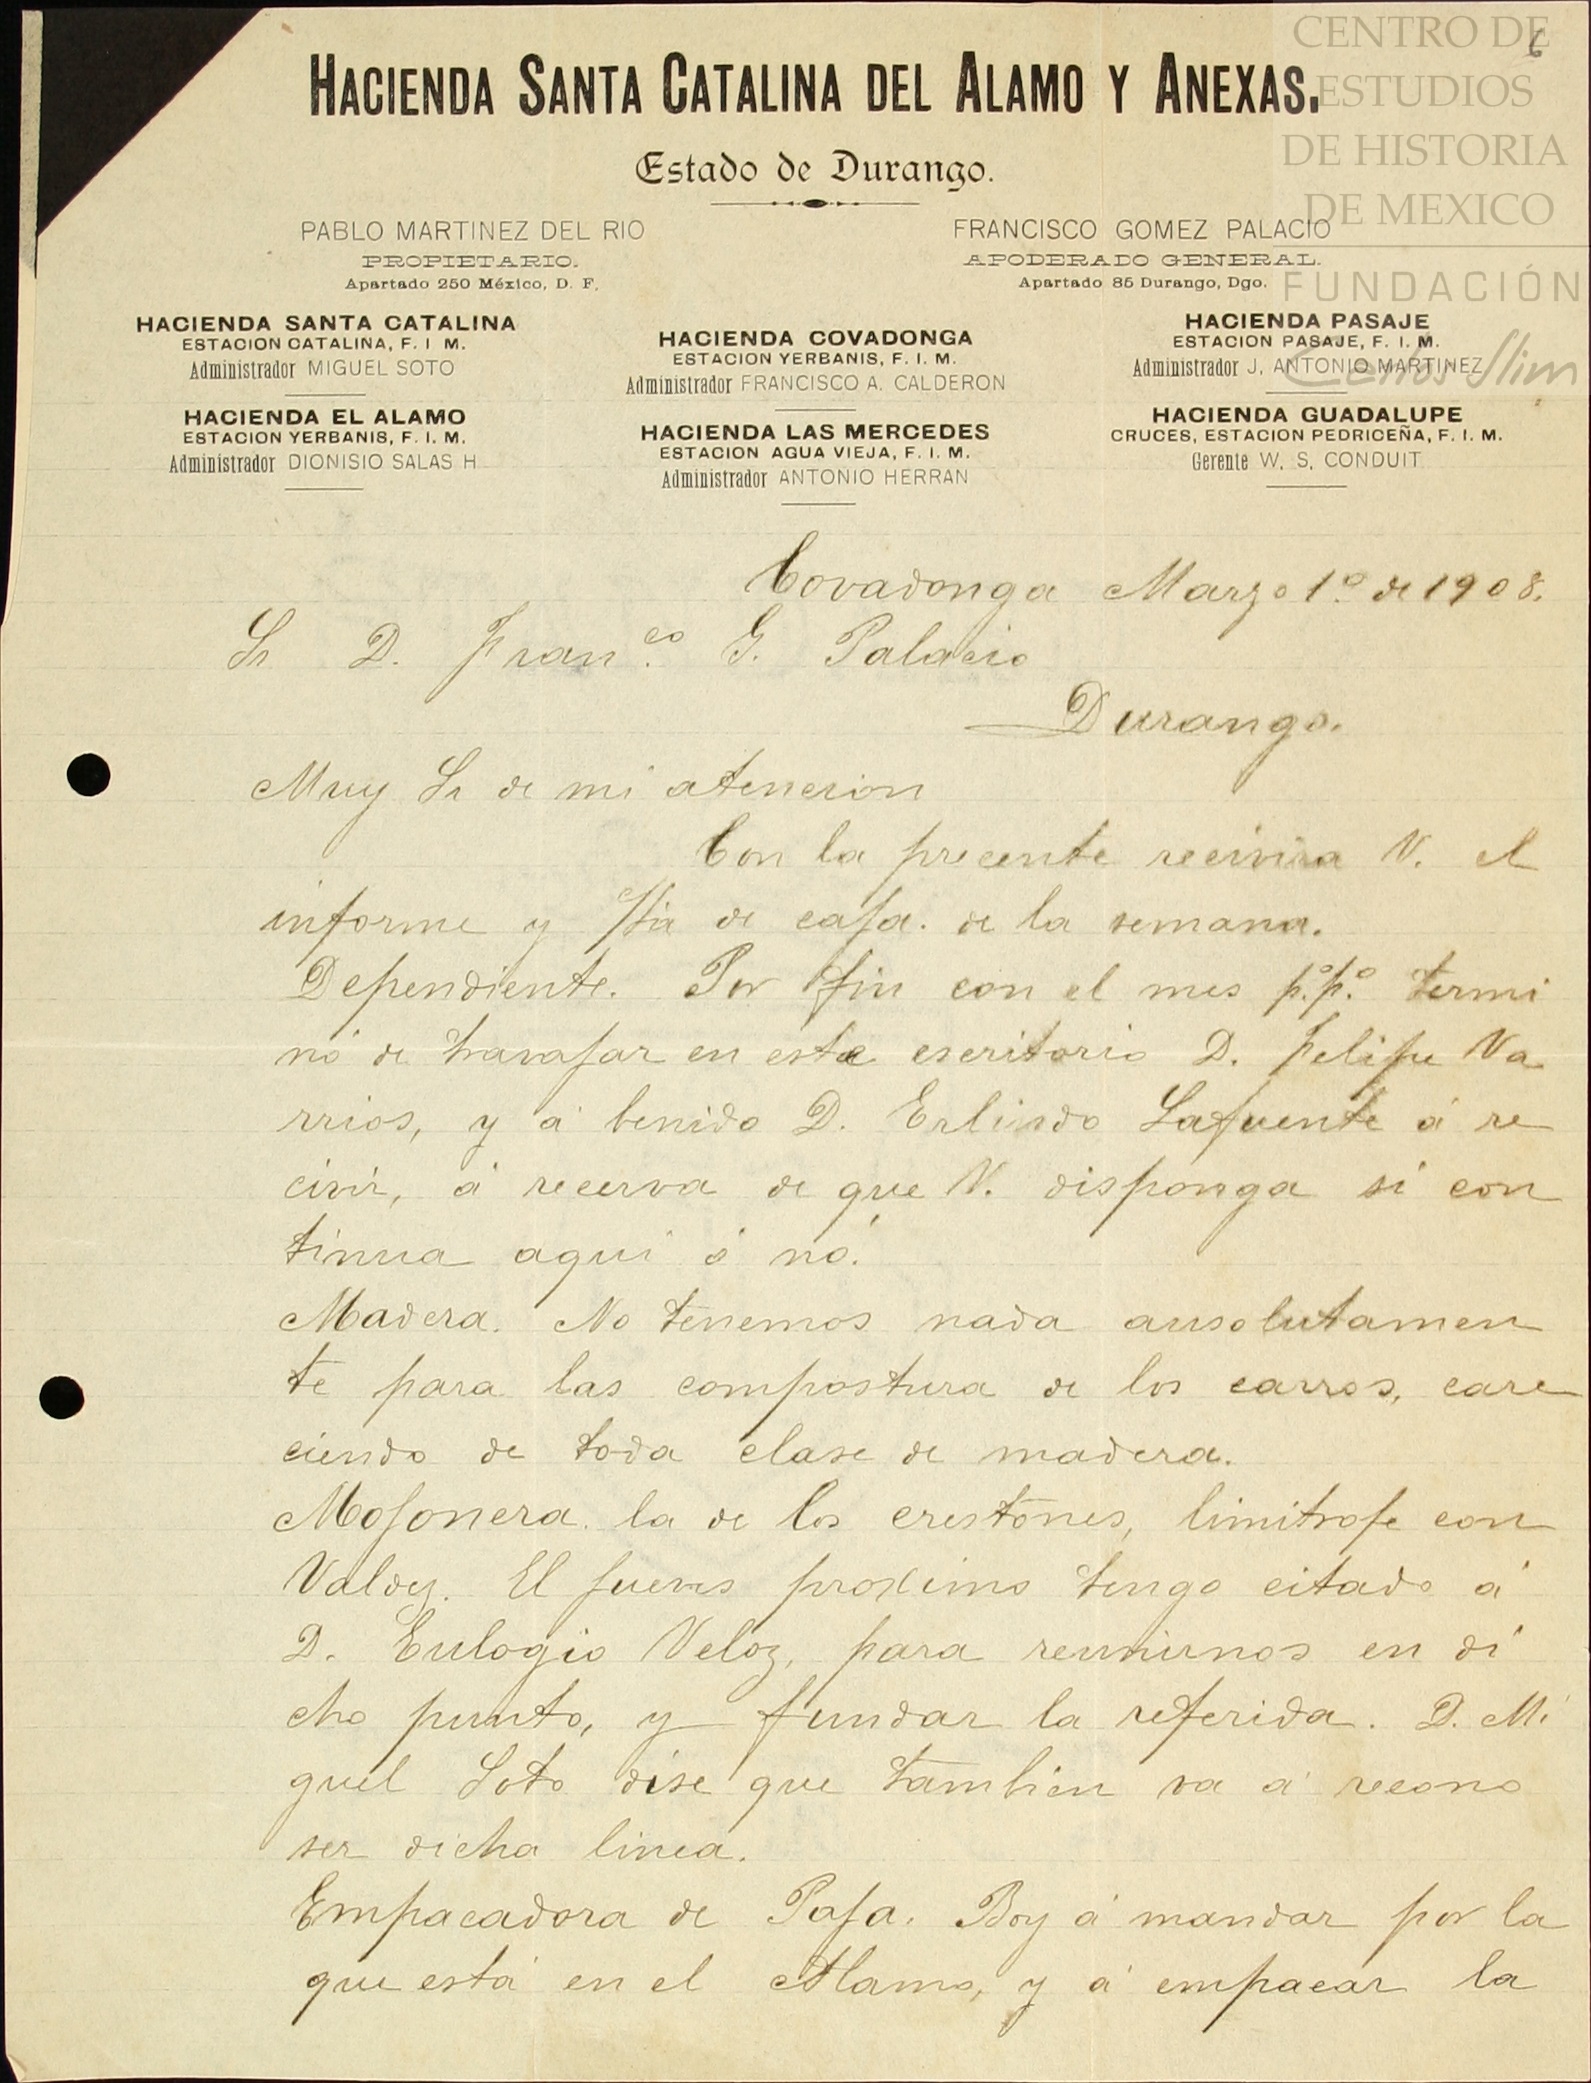 CENTRO DE
ESTUDIOS
DE HISTORIA
DE MEXICO
FUNDACIÓN
Carlos Slim
6
HACIENDA SANTA CATALINA DEL ALAMO Y ANEXAS.
Estado de Durango.
PABLO MARTINEZ DEL RIO
PROPIETARIO.
Apartado 250 México, D. F.
FRANCISCO GOMEZ PALACIO
APODERADO GENERAL.
Apartado 85 Durango, Dgo.
HACIENDA SANTA CATALINA
ESTACION CATALINA, F. I M.
Administrador MIGUEL SOTO
HACIENDA EL ALAMO
ESTACION YERBANIS, F. I. M.
Administrador DIONISIO SALAS H
HACIENDA COVADONGA
ESTACION YERBANIS, F. I. M.
Administrador FRANCISCO A. CALDERON
HACIENDA LAS MERCEDES
ESTACION AGUA VIEJA, F. I. M.
Administrador ANTONIO HERRAN
HACIENDA PASAJE
ESTACION PASAJE, F. I. M.
Administrador J. ANTONIO MARTINEZ
HACIENDA GUADALUPE
CRUCES, ESTACION PEDRICEÑA, F. I. M.
Gerente W. S. CONDUIT
Covadonga Marzo 1º de 1908.
Sr D. Franco. G. Palacio
Durango.
Muy Sr de mi atencion
Con la precente recivira V. el
informe y de caja. de la semana.
Dependiente. Por fin con el mes p.º p.º termi
nó de travajar en este escritorio D. Felipe Va
rrios, y á benido D. Erlindo Lafuente á re
civir, á recerva de que V. disponga si con
tinua aqui ó nó.
Madera. No tenemos nada ausolutamen
te para las compostura de los carros, care
ciendo de toda clase de madera.
Mojonera. la de los crestones, limitrofe con
Valdez. El jueves proximo tengo citado á
D. Eulogio Veloz, para reunirnos en di
cho punto, y fundar la referida. D. Mi
guel Soto dise que tambien va á recono
ser dicha linea.
Empacadora de Paja. Boy á mandar por la
que está en el Alamo, y á empacar la